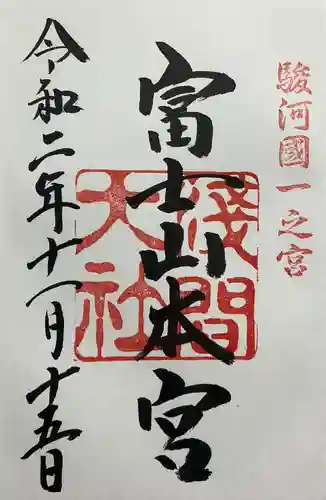 駿河國一之宮
富士山本宮
淺間大社
令和二年十一月十五日